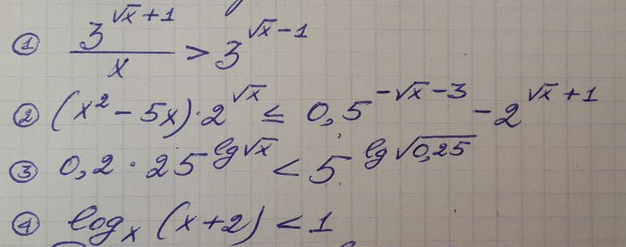 ① 3^(√x+1)/x > 3^(√x−1)
② (x² − 5x)·2^(√x) ≤ 0,5^(−√x−3) − 2^(√x+1)
③ 0,2 · 25^(lg√x) < 5^(lg√(0,25))
④ log_x (x+2) < 1